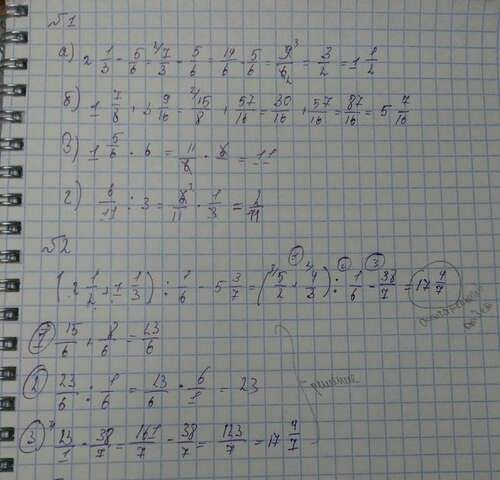 №1
а) 2 1/3 - 5/6 = 7/3 - 5/6 = 14/6 - 5/6 = 9/6 = 3/2 = 1 1/2
б) 1 7/8 + 3 9/16 = 15/8 + 57/16 = 30/16 + 57/16 = 87/16 = 5 7/16
в) 1 5/6 · 6 = 11/6 · 6 = 11
г) 6/11 : 3 = 6/11 · 1/3 = 2/11
№2
(2 1/2 + 1 1/3) : 1/6 - 5 3/7 = (5/2 + 4/3) : 1/6 - 38/7 = 17 4/7
1 15/6 + 8/6 = 23/6
2 23/6 : 1/6 = 23/6 · 6/1 = 23
решение
3 23/1 - 38/7 = 161/7 - 38/7 = 123/7 = 17 4/7